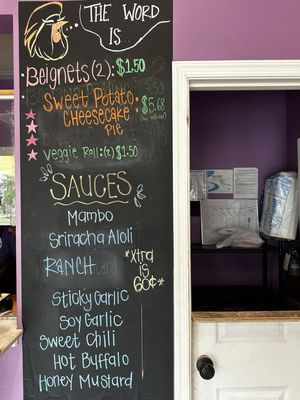 THE WORD
IS
Beignets (2): $1.50
Sweet Potato: $5.68
Cheesecake
Pie
Veggie Roll: (2) $1.50
SAUCES
Mambo
Sriracha Aloli
RANCH
*Xtra
is
60¢*
Sticky Garlic
Soy Garlic
Sweet Chili
Hot Buffalo
Honey Mustard